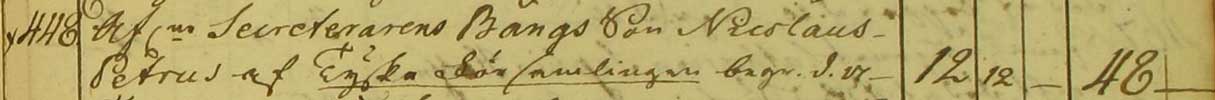 448. Af m Secreterarens Bångs Son Nicolaus-
Petrus af Tyska Församlingen begr. d. 12 12 — 48 —